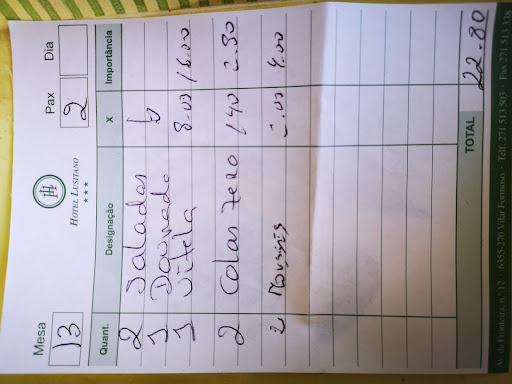 HOTEL LUSITANO
★★★
Mesa 13 Pax 2 Dia
Quant. Designação X Importância
2 Saladas
1 Dourada
1 Vitela 8.00 16.00
2 Colas zero 140 2.80
2 .00 4.00
TOTAL 22.80
Av. da Fronteira, n.º 12 · 6355-270 Vilar Formoso · Telf. 271 513 503 · Fax 271 513 338